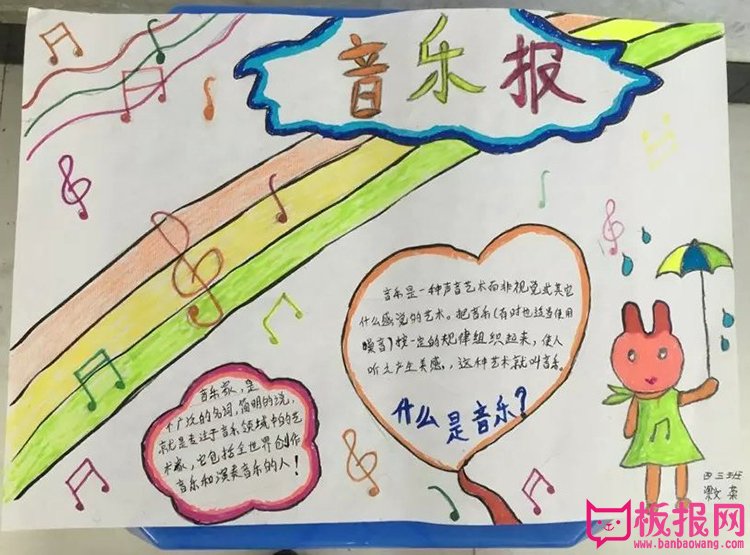 音乐报
音乐是一种声音艺术而非视觉或其它
什么感觉的艺术。把音乐(有时也适当使用
噪音)按一定的规律组织起来,使人
听之产生美感,,这种艺术就叫音乐。
什么是音乐?
音乐家,是
个广泛的名词,简明的说,
就是专注于音乐领域中的艺
术家,它包括全世界创作
音乐和演奏音乐的人!
四三班
板报网
www.banbaowang.com